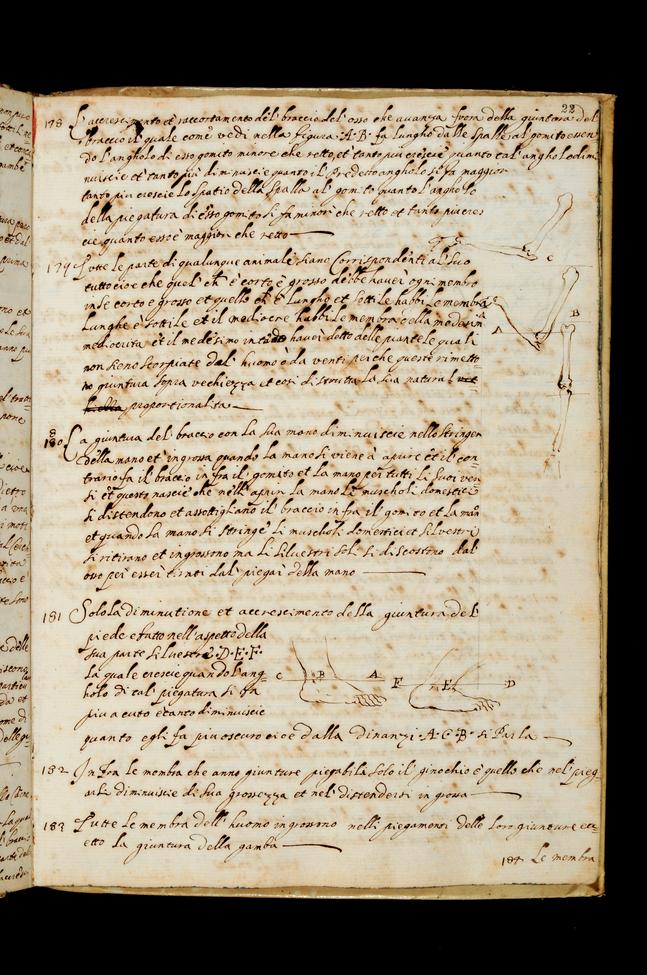 22
178 L'accrescimento et raccortamento del braccio del osso che auanza fuora della giuntura del
braccio il quale come vedi nella figura A·B· fa lungho dalle spalle al gomito essen
do l'angholo di esso gomito minore che retto, et tanto piu crescie quanto tal angholo dim
nuiscie et tanto piu diminuiscie quanto il predetto angholo si fa maggior
tanto piu crescie lo spatio della spalla al gomito quanto l'angholo
della piegatura di esso gomito si fa minor che retto et tanto piu cres
cie quanto esso è maggior che retto
179 Tutte le parte di qualunque animale siano Corrispondenti al suo
tutto cioe che quel ch' è corto è grosso debbe hauer ogni membro
in se corto e grosso et quello ch' è lungho et sottile habbi le membra
Lunghe e sottile et il mediocre habbi le membra della medesim
mediocrita et il medesimo intendo hauer detto delle piante le quali
non sieno storpiate dal' huomo è da venti perche queste rimetto
no giuntura sopra vechiezza et cosi è distrutta la sua natural
proportionalita
180 La giuntura del braccio con la sua mano diminuiscie nello stringer
della mano et ingrossa quando la mano si viene à aprire et il con
trario fa il braccio infra il gomito et la mano per tutti li suoi ver
si et questo nascie che nell' aprir la mano le muscholi domestici
si distendono et assottigliano il braccio infra il gomito et la mano
et quando la mano si stringe li muscholi domestici et siluestri
si ritirano et ingrossono ma li siluestri soli si discostono dal'
osso per esser tirati dal piegar della mano
181 Solo la diminutione et accrescimento della giuntura del
piede è fatto nell' aspetto della
sua parte siluestre ·D·E·F·
la quale crescie quando l'ang
holo di tal piegatura si fa
piu acuto e tanto diminuiscie
quanto egli fa piu oscuro cioè dalla dinanzi ·A·C·B· si Parla
C B A F E D
A B C
182 Infra le membra che anno giunture piegabili solo il ginochio è quello che nel' pieg
arsi diminuisce di sua grossezza et nel' distendersi ingrossa
183 Tutte le membra dell' huomo ingrossono nelli piegamenti delle loro giunture ecc
etto la giuntura della gamba
184 Le membra